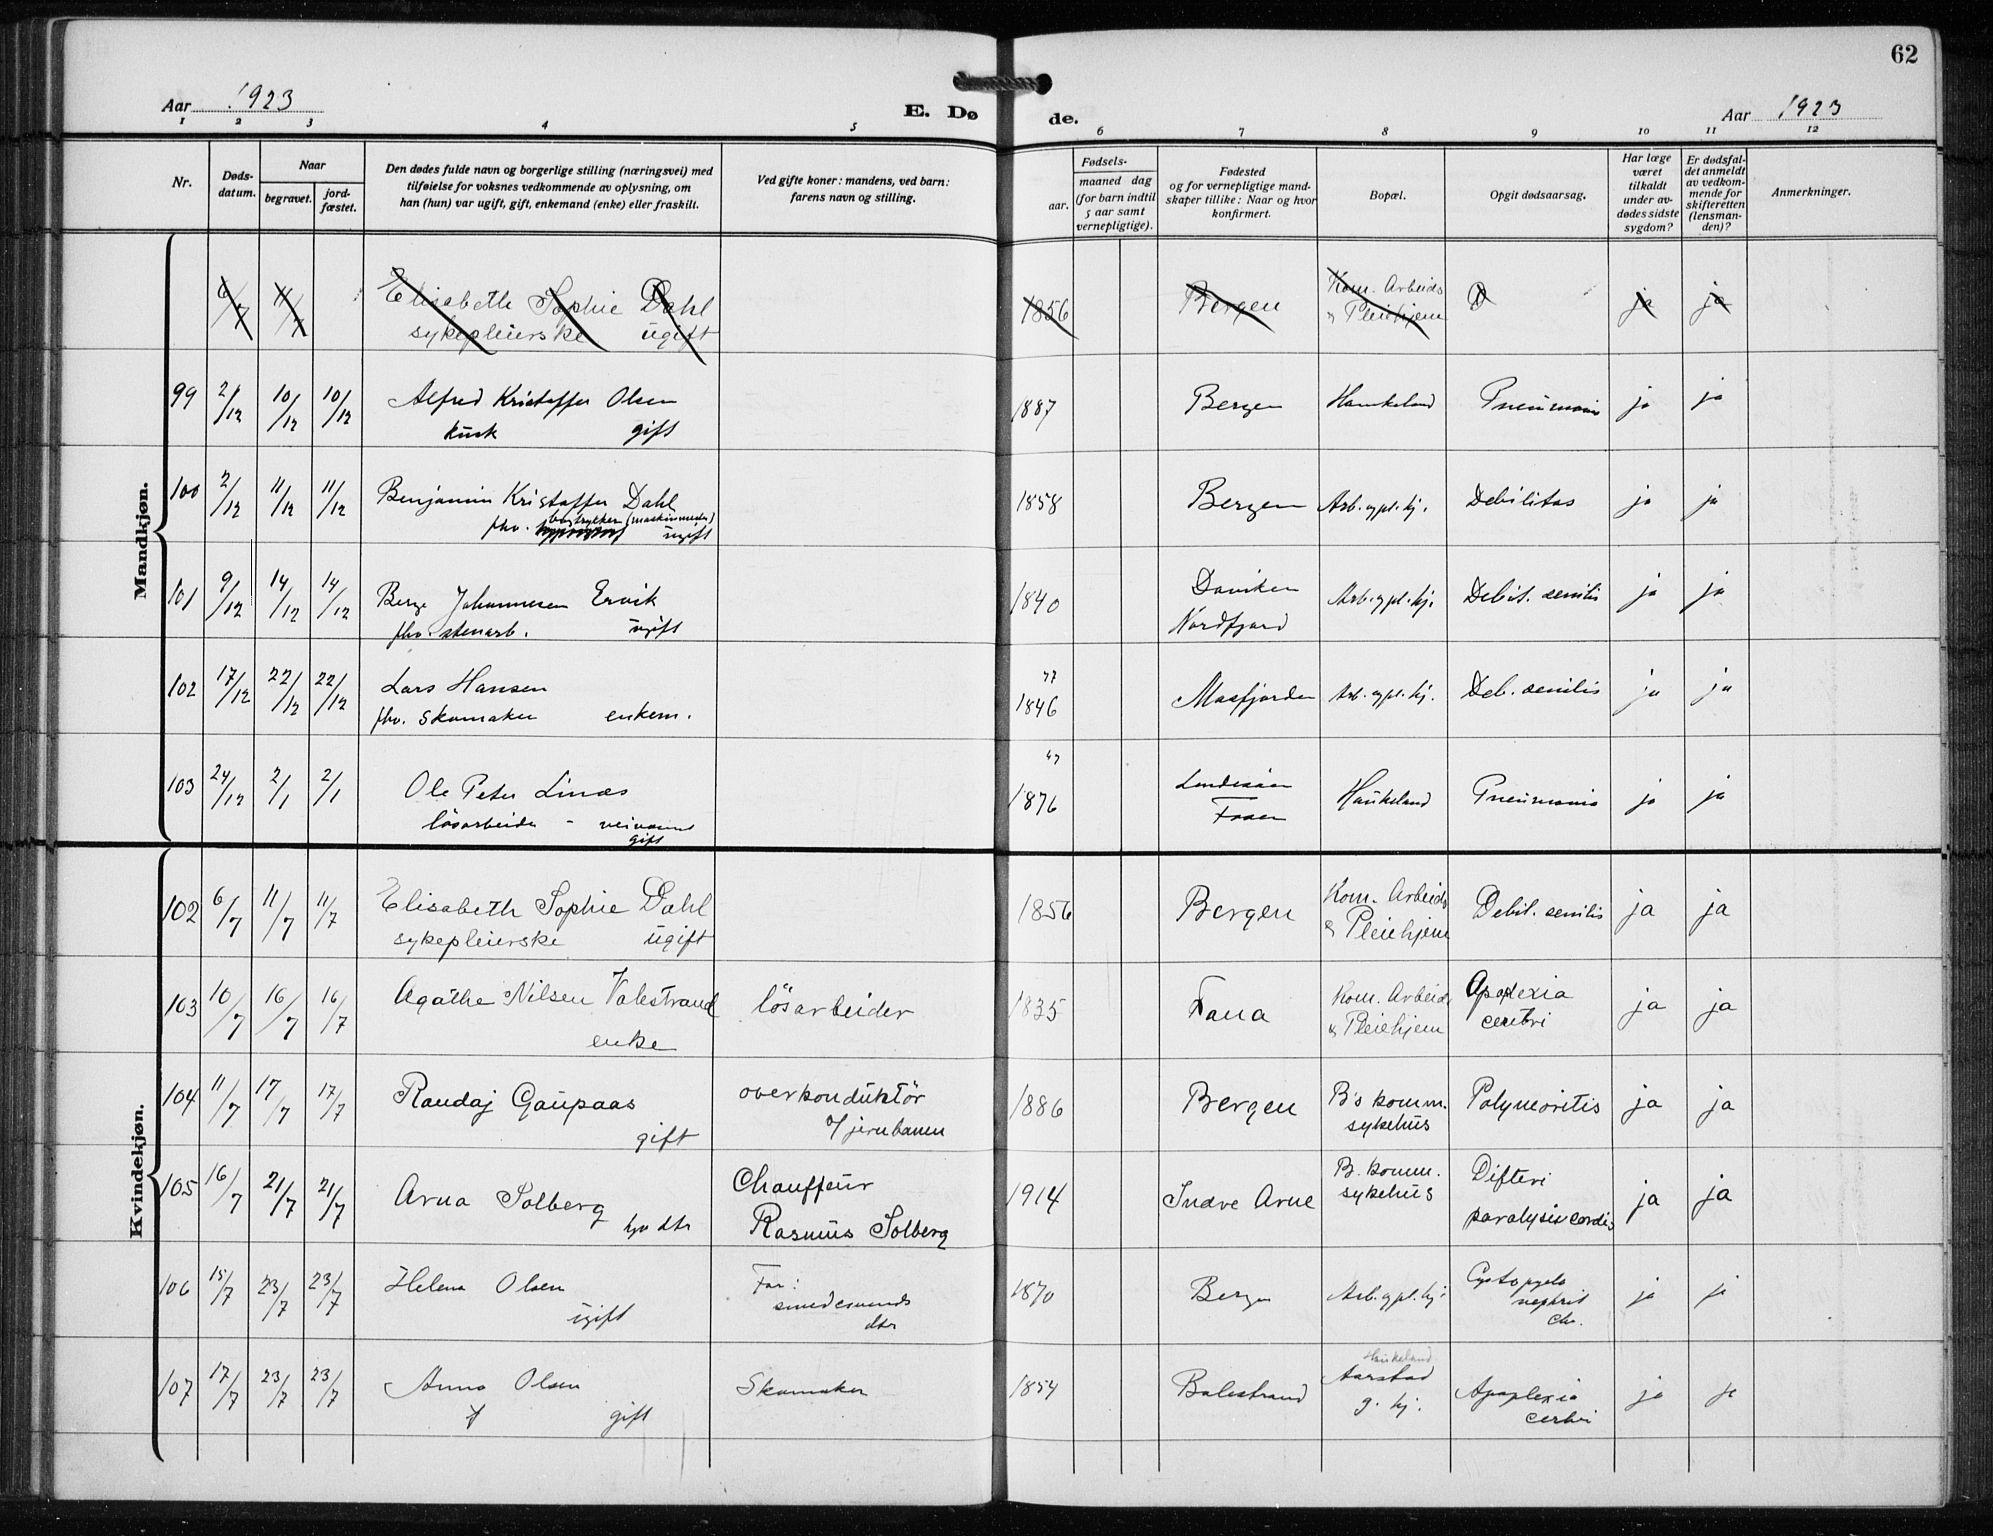 62
Aar 1923
E. Dø de.
Aar 1923
1 2 3 4 5 6 7 8 9 10 11 12
Nr.
Døds-
datum.
Naar
begravet.
jord-
fæstet.
Den dødes fulde navn og borgerlige stilling (næringsvei) med
tilføielse for voksnes vedkommende av oplysning, om
han (hun) var ugift, gift, enkemand (enke) eller fraskilt.
Ved gifte koner: mandens, ved barn:
farens navn og stilling.
Fødsels-
aar.
maaned dag
(for barn indtil
5 aar samt
vernepligtige).
Fødested
og for vernepligtige mand-
skaper tillike: Naar og hvor
konfirmert.
Bopæl.
Opgit dødsaarsag.
Har læge
været
tilkaldt
under av-
dødes sidste
sygdom?
Er dødsfal-
det anmeldt
av vedkom-
mende for
skifteretten
(lensman-
den)?
Anmerkninger.
Mandkjøn.
6/7 11/7 Elisabeth Sophie Dahl 1856 Bergen Kom. Arbeids D ja ja
sykepleierske ugift & Pleiehjem
99 2/12 10/12 10/12 Alfred Kristoffer Olsen 1887 Bergen Haukeland Pneumoni ja ja
kusk gift
100 2/12 11/12 11/12 Benjamin Kristoffer Dahl 1858 Bergen Arb. og pl. hj. Debilitas ja ja
fhv. boktrykker (maskinmester)
ugift
101 9/12 14/12 14/12 Berge Johannesen Ervik 1840 Daviken Arb. og pl. hj. Debit. senilis ja ja
fhv. stenarb. ugift Nordfjord
102 17/12 22/12 22/12 Lars Hansen 1846 Masfjorden Arb. og pl. hj. Deb. senilis ja ja
fhv. skomaker enkem.
103 24/12 2/1 2/1 Ole Peter Linæs 1876 Haukeland Pneumonia ja ja
løsarbeider - veivæsenet
gift
Kvindekjøn.
102 6/7 11/7 11/7 Elisabeth Sophie Dahl 1856 Bergen Kom. Arbeids Debil. senilis ja ja
sykepleierske ugift & Pleiehjem
103 10/7 16/7 16/7 Agathe Nilsen Valestrand løsarbeider 1835 Fana Kom. Arbeids Apoplexia ja ja
enke & Pleiehjem cerebri
104 11/7 17/7 17/7 Randaj Gaupaas overkonduktør 1886 Bergen B's komm. Polyneoritis ja ja
gift v/jernbanen sykehus
105 16/7 21/7 21/7 Arna Solberg Chauffeur 1914 Indre Arne B. komm. Difteri ja ja
dtr Rasmus Solberg sykehus paralysis cordis
106 15/7 23/7 23/7 Helena Olsen Far: 1870 Bergen Arb. og pl. hj. Cystopyelo ja ja
ugift smedesvends nephrit
dtr ch.
107 17/7 23/7 23/7 Anna Olsen Skomaker 1854 Balestrand Haukeland Apoplexia ja ja
gift Aarstad cerebri
g. hj.